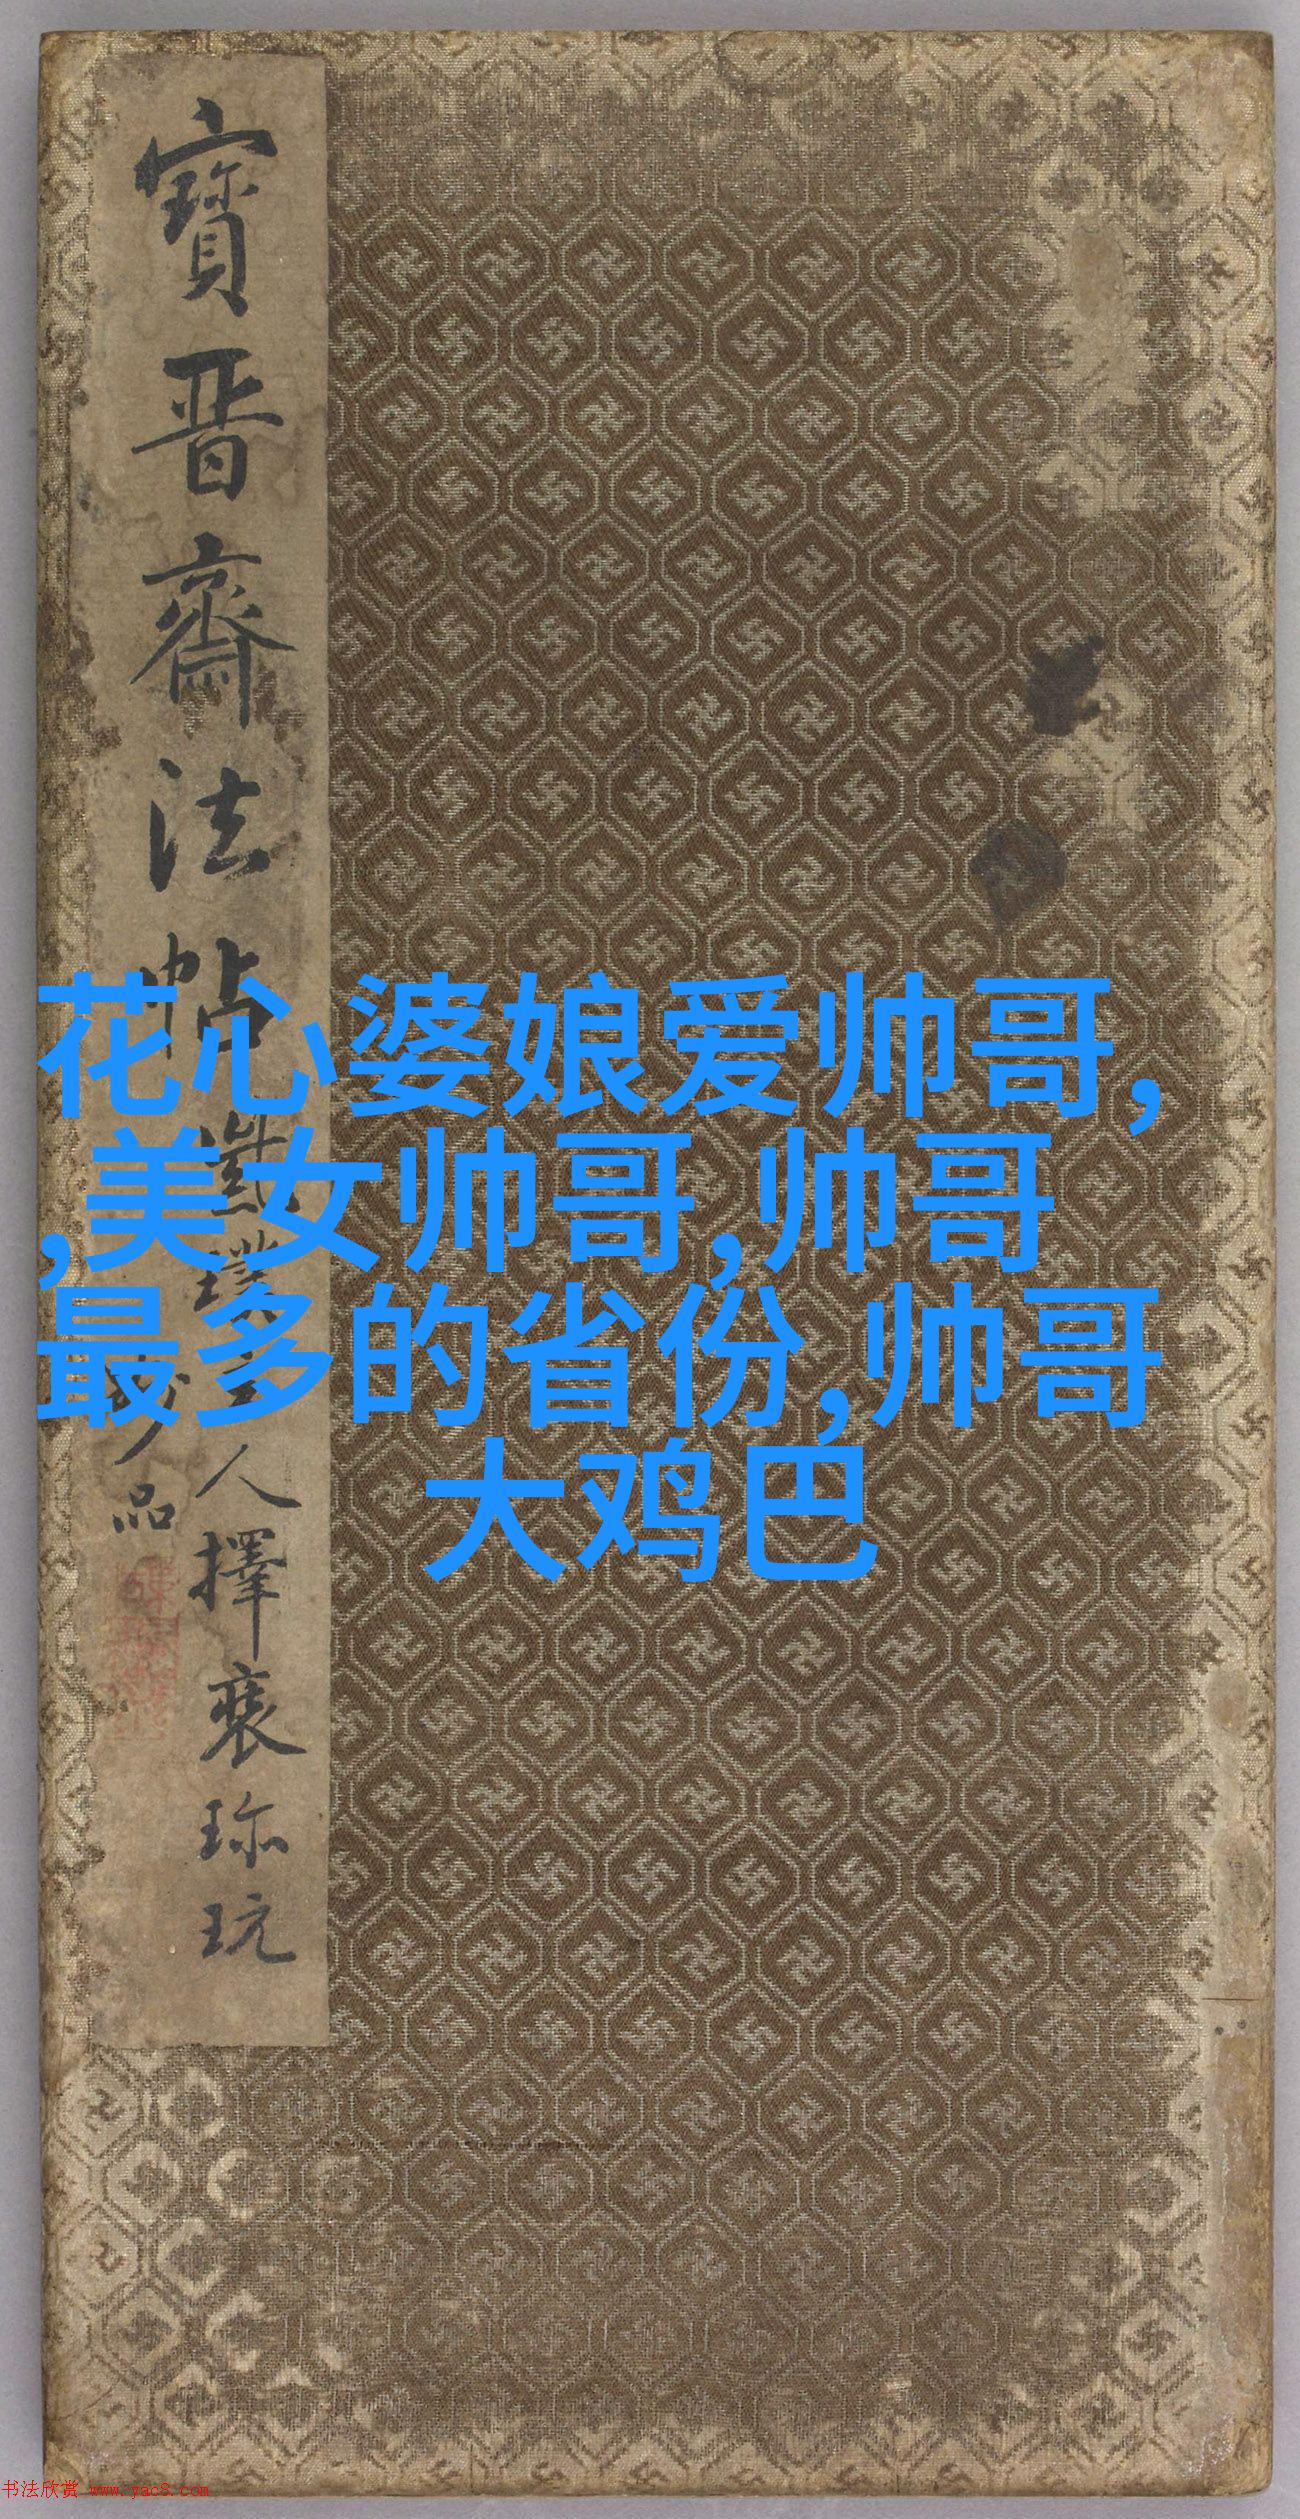 寶晋齋法帖
人擇裘珎玩
品
花心婆娘爱帅哥,
,美女帅哥,帅哥
最多的省份,帅哥
大鸡巴
书法欣赏 www.yac8.com